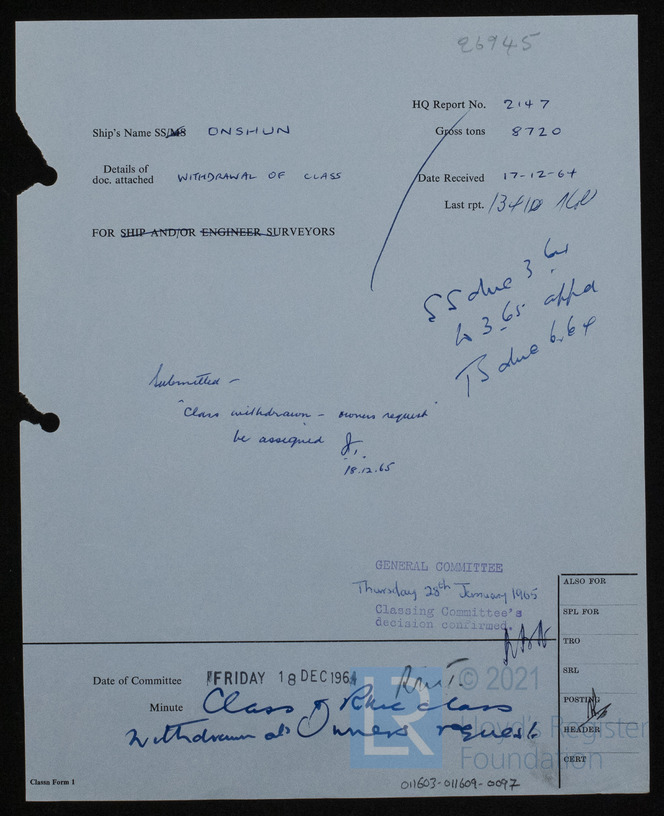 26945
HQ Report No. 2147
Ship's Name SS/MS ONSHUN
Gross tons 8720
Details of
doc. attached WITHDRAWAL OF CLASS
Date Received 17-12-64
Last rpt.
FOR SHIP AND/OR ENGINEER SURVEYORS
SS due 3.64
to 3.65 appd
TS due 6.64
Submitted -
"Class withdrawn - owners request"
be assigned
18.12.65
GENERAL COMMITTEE
Thursday 28th January 1965
Classing Committee's
decision confirmed.
ALSO FOR
SPL FOR
TRO
SRL
POSTING
HEADER
CERT
Date of Committee FRIDAY 18 DEC 1964
Minute Class & RMC class
withdrawn at Owners request
LR
© 2021
Lloyd's Register
Foundation
Classn Form 1
011603-011609-0097